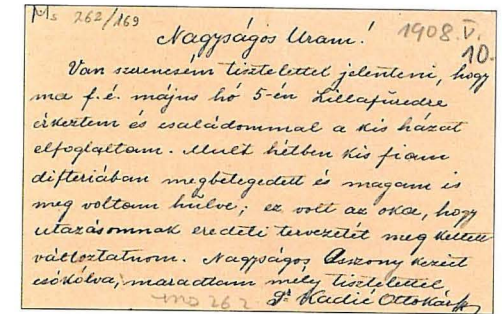 Ms 262/169
1908. V. 10.
Nagyságos Uram!
Van szerencsém tisztelettel jelenteni, hogy
ma f. é. május hó 5-én Lillafüredre
érkeztem és családommal a kis házat
elfoglaltam. Mult hétben kis fiam
difteriában megbetegedett és magam is
meg voltam hülve; ez volt az oka, hogy
utazásomnak eredeti tervezetét meg kellett
változtatnom. Nagyságos Asszony kezeit
csókolva, maradtam mély tisztelettel,
Dr Kadić Ottokár
262